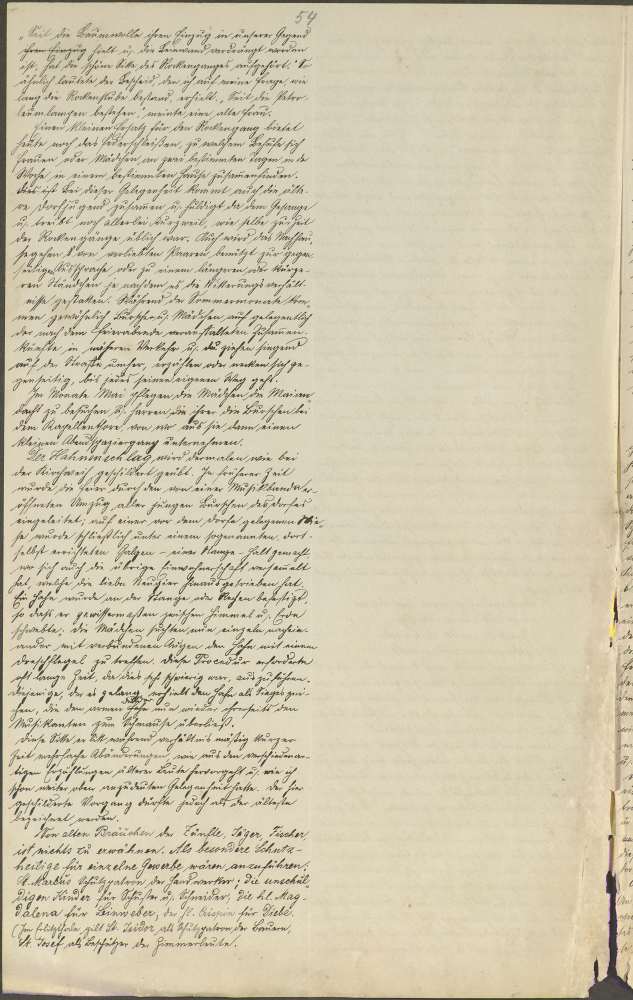 54
„Seit die Baumwolle ihren Einzug in unserer Gegend
ihren Einzug hielt u. die Leinwand verdrängt worden
ist, hat die schöne Sitte des Rockenganges aufgehört.“ So
ähnlich lautete der Bescheid, den ich auf meine Frage, wie
lang die Rockenstube bestand, erhielt. „Seit die Petro-
leumlampen bestehen,“ meinte eine alte Frau.
Einen kleinen Ersatz für den Rockengang bietet
heute noch das Federschleißen, zu welchem Behufe sich
Frauen oder Mädchen an zwei bestimmten Tagen in der
Woche in einem bestimmten Hause zusammenfinden.
Bei dieser Gelegenheit kommt auch die älte-
re Dorfjugend zusammen u. huldigt da dem Gesange
u. treibt noch allerlei Kurzweil, wie selbe zur Zeit
der Rockengänge üblich war. Auch wird das Nachhau-
segehen von verliebten Paaren benützt zur gegen-
seitigen Aussprache oder zu einem längeren oder kürze-
ren Ständchen je nachdem es die Witterungsverhält-
nisse gestatten. Während der Sommermonate kom-
men gewöhnlich Burschen u. Mädchen auch gelegentlich
der nach dem Feierabende veranstalteten Zusammen-
künfte in näheren Verkehr u. da ziehen singend
auf der Straße umher, erzählen oder necken sich ge-
genseitig, bis jedes seinen eigenen Weg geht.
Im Monate Mai pflegen die Mädchen die Maian-
dacht zu besuchen u. harren die ihrer die Burschen bei
dem Kapellentore, von wo aus sie dann einen
kleinen Abendspaziergang unternehmen.
Der Hahnenschlag wird dermalen wie bei
der Kirchweih geschildert geübt. In früherer Zeit
wurde die Feier durch den von einer Musikbande er-
öffneten Umzug aller jungen Burschen des Dorfes
eingeleitet, auf einer vor dem Dorfe gelegenen Wie-
se wurde schließlich unter einem sogenannten, dort-
selbst errichteten Galgen – einer Stange – Halt gemacht
wo sich auch die übrige Einwohnerschaft versammelt
hat, welche die liebe Neugier hinausgetrieben hat.
Ein Hahn wurde an der Stange oder Rechen befestigt,
so daß er gewissermaßen zwischen Himmel u. Erde
schwebte. Die Mädchen suchten nun einzeln nachein-
ander mit verbundenen Augen den Hahn mit einem
Dreschflegel zu treffen. Diese Procedur erforderte
oft lange Zeit, da dies sehr schwierig war, auszuführen.
Diejenige, der es gelang, erhielt den Hahn als Siegespreis
die den armen Hahn nun wieder ihrerseits den
Musikanten zum Schmause überließ.
Diese Sitte erlitt während verhältnismäßig kurzer
Zeit mehrfache Abänderungen, wie aus den verschiedenar-
tigen Erzählungen älterer Leute hervorgeht u. wie ich
schon weiter oben anzudeuten Gelegenheit hatte. Der hier
geschilderte Vorgang dürfte jedoch als der älteste
bezeichnet werden.
Von alten Bräuchen der Zünfte, Jäger, Fischer
ist nichts zu erwähnen. Als besondere Schutz-
heilige für einzelne Gewerbe wären anzuführen:
St. Markus Schutzpatron der Handwerker, die unschul-
digen Kinder für Schuster u. Schneider, die hl. Mag-
dalena für Leinweber, der hl. Crispin für Diebe.
gilt St. Isidor als Schutzpatron der Bauern,
St. Josef als Beschützer der Zimmerleute.